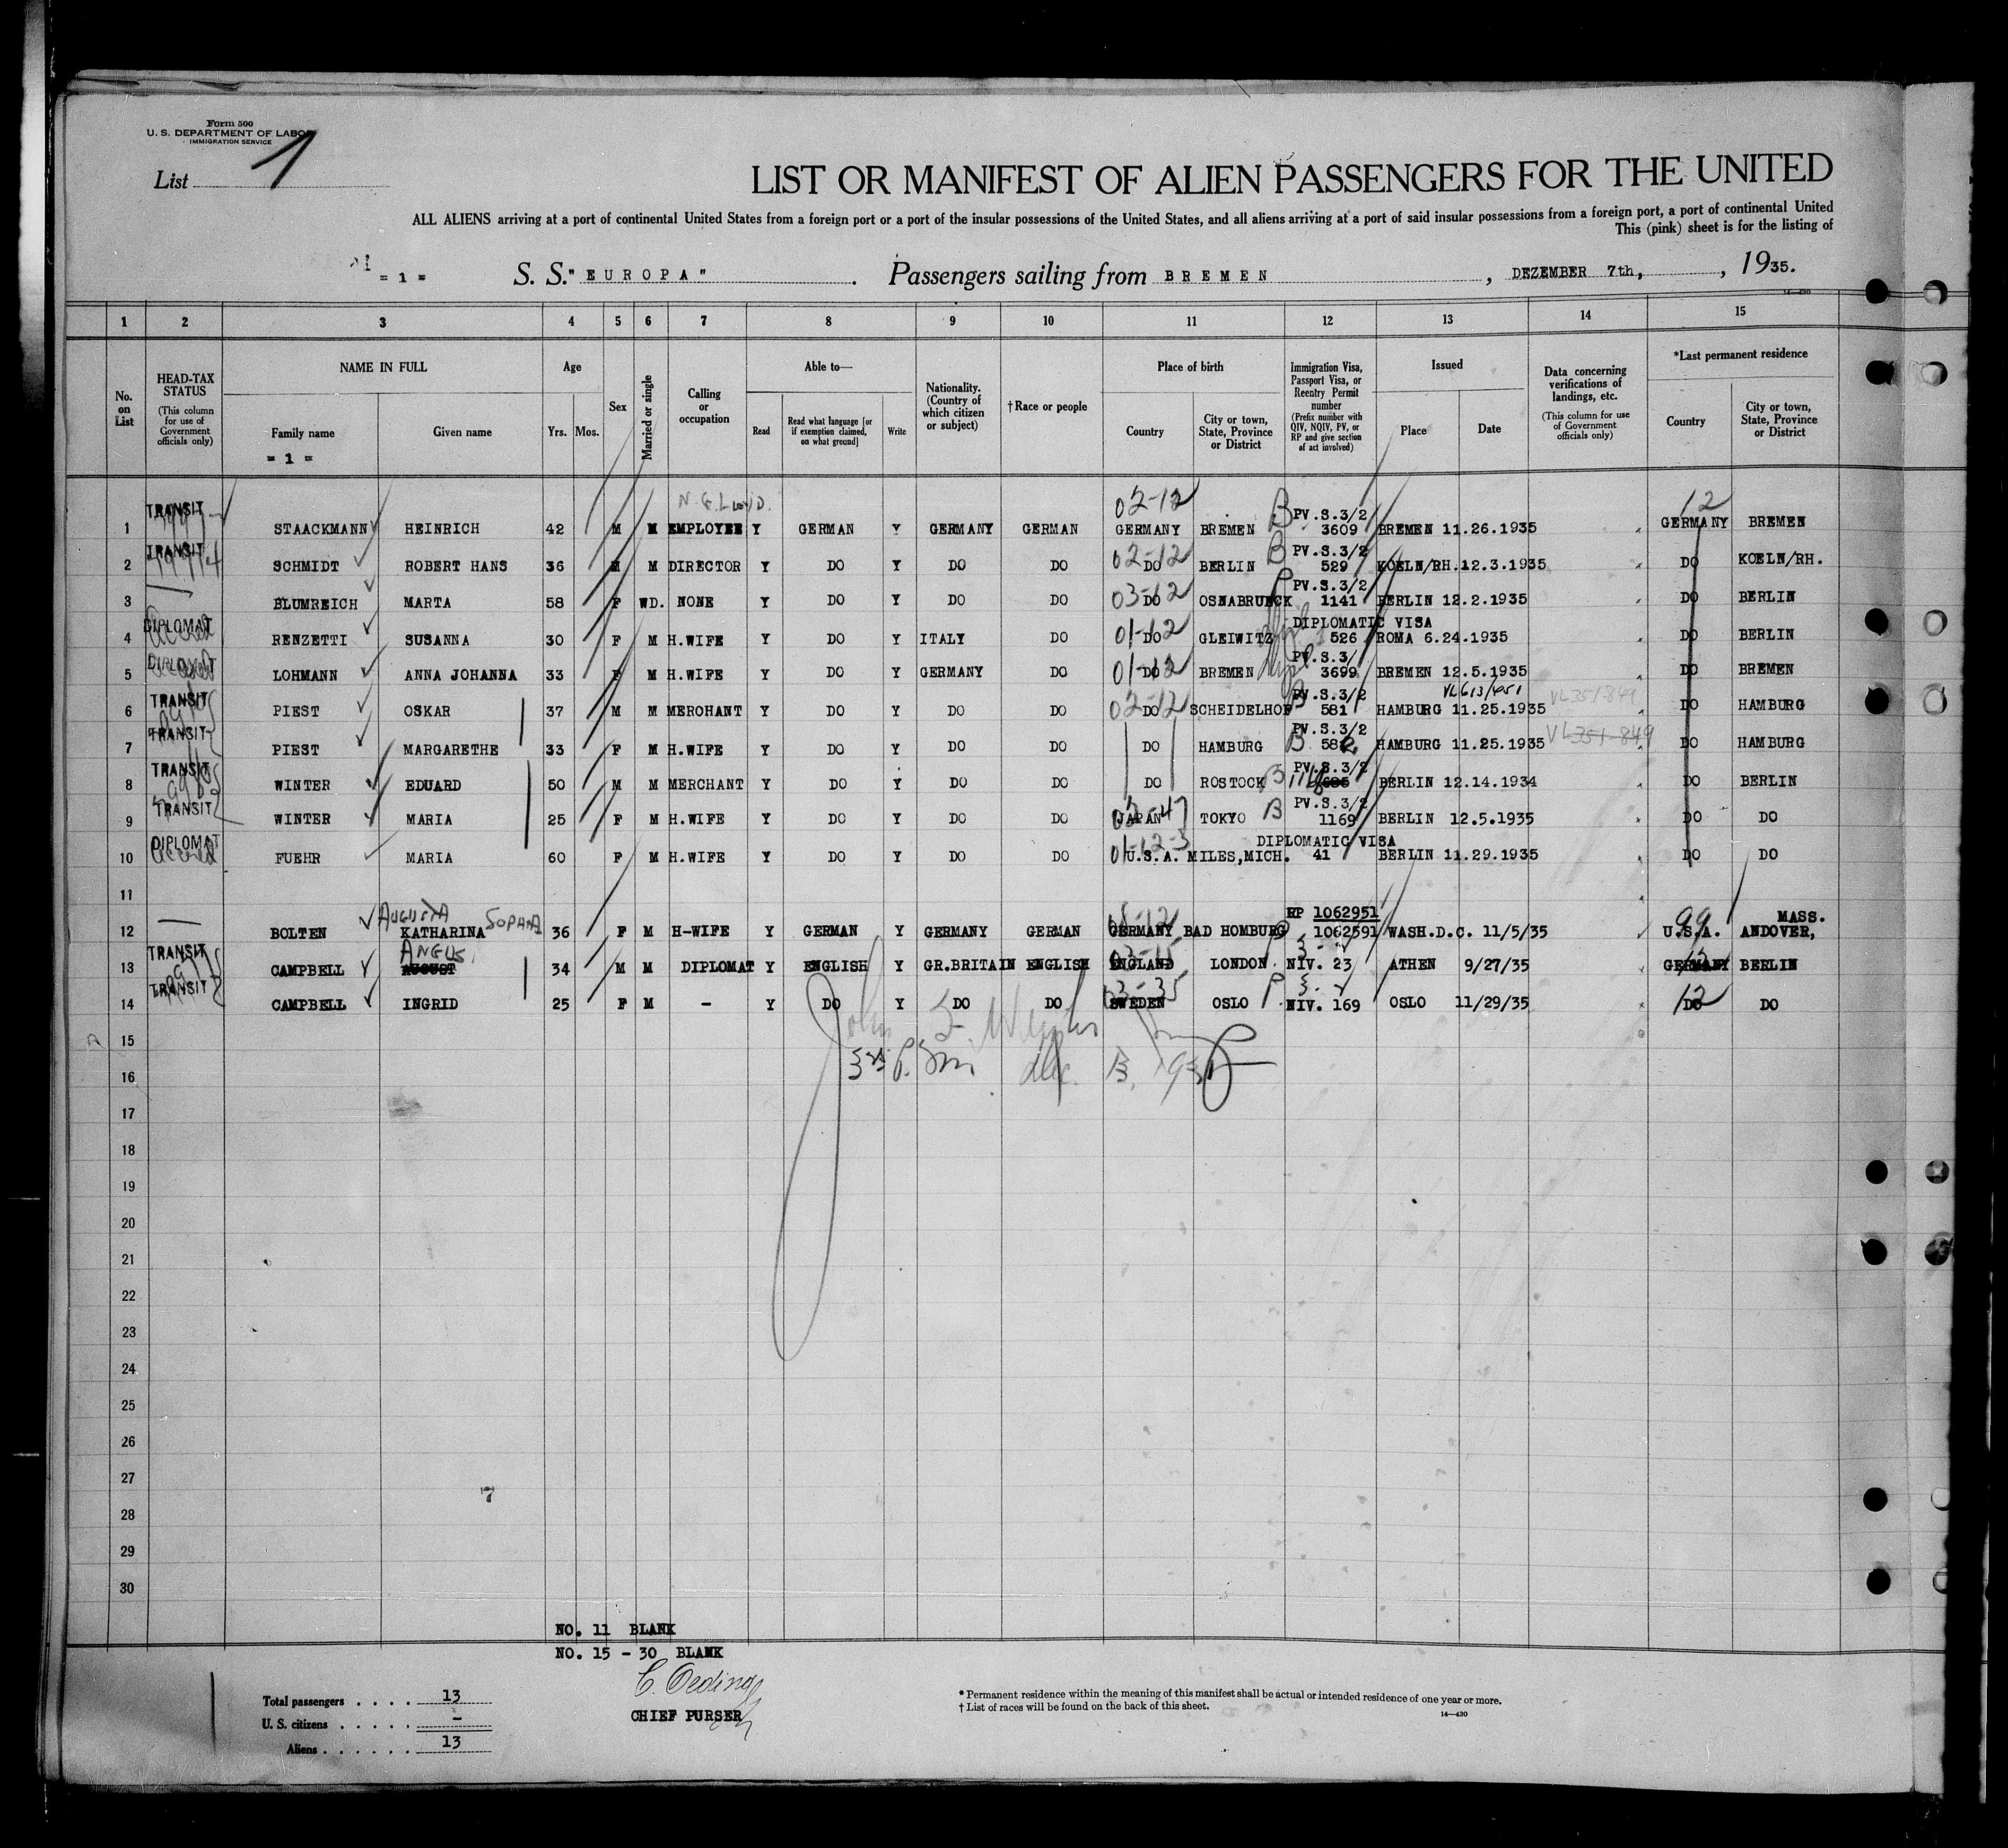 Form 500
U. S. DEPARTMENT OF LABOR
IMMIGRATION SERVICE
List 1
LIST OR MANIFEST OF ALIEN PASSENGERS FOR THE UNITED
ALL ALIENS arriving at a port of continental United States from a foreign port or a port of the insular possessions of the United States, and all aliens arriving at a port of said insular possessions from a foreign port, a port of continental United
This (pink) sheet is for the listing of
= 1 = S. S. "EUROPA" . Passengers sailing from BREMEN , DEZEMBER 7th, , 1935.
14—430
1 2 3 4 5 6 7 8 9 10 11 12 13 14 15
No. on List
HEAD-TAX STATUS (This column for use of Government officials only)
NAME IN FULL
Family name
= 1 =
Given name
Age
Yrs. Mos.
Sex
Married or single
Calling or occupation
Able to—
Read
Read what language [or if exemption claimed, on what ground]
Write
Nationality. (Country of which citizen or subject)
†Race or people
Place of birth
Country
City or town, State, Province or District
Immigration Visa, Passport Visa, or Reentry Permit number (Prefix number with QIV, NQIV, PV, or RP and give section of act involved)
Issued
Place
Date
Data concerning verifications of landings, etc. (This column for use of Government officials only)
*Last permanent residence
Country
City or town, State, Province or District
TRANSIT N.G.Lloyd. 02-12 B PV.S.3/2 12
1 STAACKMANN HEINRICH 42 M M EMPLOYEE Y GERMAN Y GERMANY GERMAN GERMANY BREMEN 3609 BREMEN 11.26.1935 GERMANY BREMEN
TRANSIT 02-12 B PV.S.3/2
2 SCHMIDT ROBERT HANS 36 M M DIRECTOR Y DO Y DO DO DO BERLIN 529 KOELN/RH. 12.3.1935 DO KOELN/RH.
03-12 P PV.S.3/2
3 BLUMREICH MARTA 58 F WD. NONE Y DO Y DO DO DO OSNABRUECK 1141 BERLIN 12.2.1935 DO BERLIN
DIPLOMAT 01-12 DIPLOMATIC VISA
4 RENZETTI SUSANNA 30 F M H.WIFE Y DO Y ITALY DO DO GLEIWITZ 526 ROMA 6.24.1935 DO BERLIN
DIPLOMAT 01-12 PV.S.3/
5 LOHMANN ANNA JOHANNA 33 F M H.WIFE Y DO Y GERMANY DO DO BREMEN 3699 BREMEN 12.5.1935 DO BREMEN
TRANSIT 02-12 B PV.S.3/2 VL613/451 VL351849
6 PIEST OSKAR 37 M M MERCHANT Y DO Y DO DO DO SCHEIDELHOF 581 HAMBURG 11.25.1935 DO HAMBURG
TRANSIT B PV.S.3/2 VL351-849
7 PIEST MARGARETHE 33 F M H.WIFE Y DO Y DO DO DO HAMBURG 582 HAMBURG 11.25.1935 DO HAMBURG
TRANSIT B PV.S.3/2
8 WINTER EDUARD 50 M M MERCHANT Y DO Y DO DO DO ROSTOCK BERLIN 12.14.1934 DO BERLIN
TRANSIT B PV.S.3/2
9 WINTER MARIA 25 F M H.WIFE Y DO Y DO DO JAPAN TOKYO 1169 BERLIN 12.5.1935 DO DO
DIPLOMAT 01-12-3 DIPLOMATIC VISA
10 FUEHR MARIA 60 F M H.WIFE Y DO Y DO DO U.S.A. MILES,MICH. 41 BERLIN 11.29.1935 DO DO
11
AUGUSTA SOPHIA 08-12 RP 1062951 99 MASS.
12 BOLTEN KATHARINA 36 F M H-WIFE Y GERMAN Y GERMANY GERMAN GERMANY BAD HOMBURG 1062591 WASH.D.C. 11/5/35 U.S.A. ANDOVER,
TRANSIT ANGUS, 03-15
13 CAMPBELL AUGUST 34 M M DIPLOMAT Y ENGLISH Y GR.BRITAIN ENGLISH ENGLAND LONDON NIV. 23 ATHEN 9/27/35 GERMANY BERLIN
TRANSIT 03-35 12
14 CAMPBELL INGRID 25 F M - Y DO Y DO DO SWEDEN OSLO NIV. 169 OSLO 11/29/35 DO DO
15
16
17
18
19
20
21
22
23
24
25
26
27
28
29
30
7
NO. 11 BLANK
NO. 15 - 30 BLANK
C. Oeding
CHIEF PURSER
Total passengers . . . . 13
U. S. citizens . . . . . -
Aliens . . . . . . 13
* Permanent residence within the meaning of this manifest shall be actual or intended residence of one year or more.
† List of races will be found on the back of this sheet.
14—430